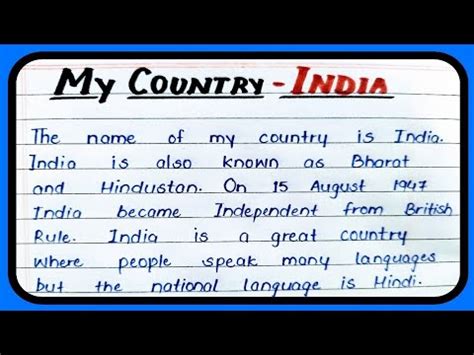 My Country - India
The name of my country is India.
India is also known as Bharat
and Hindustan. On 15 August 1947
India became Independent from British
Rule. India is a great country
where people speak many languages
but the national language is Hindi.